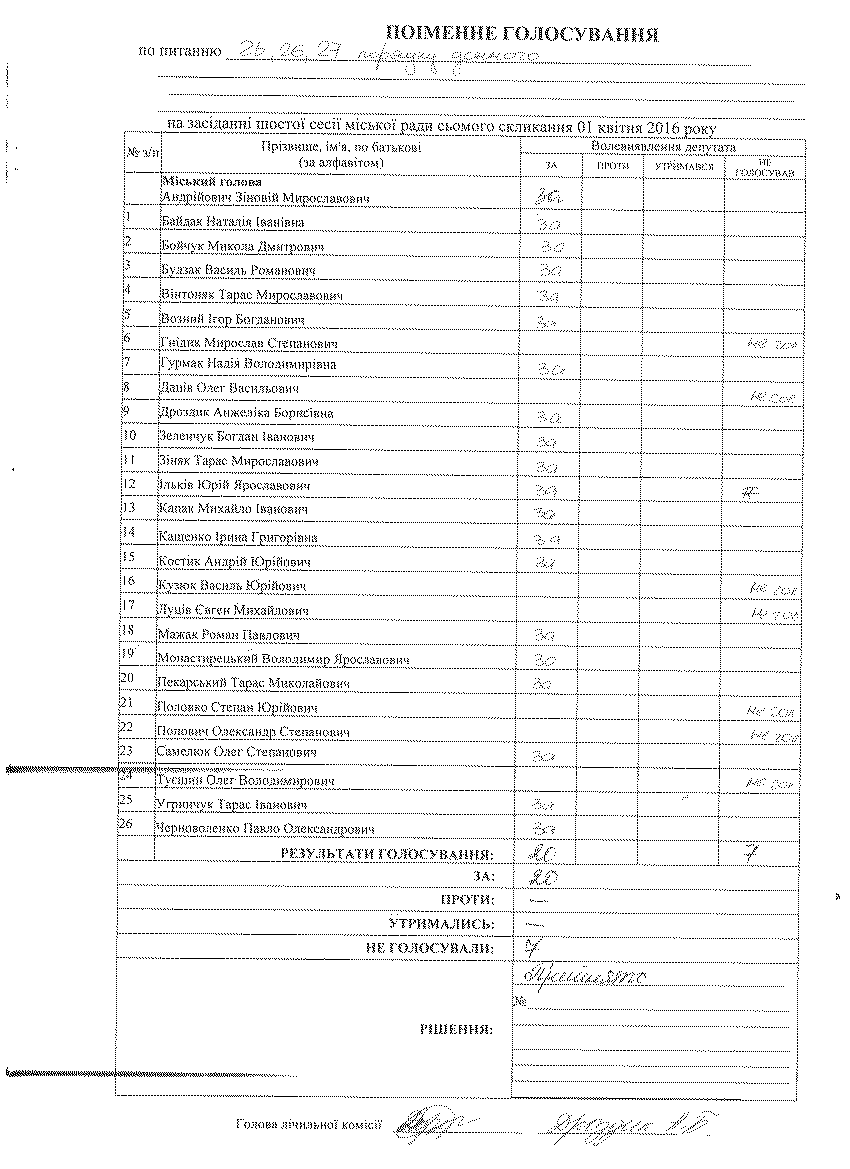 ПОІМЕННЕ ГОЛОСУВАННЯ
по питанню 25, 26, 27 порядку денного
на засіданні шостої сесії міської ради сьомого скликання 01 квітня 2016 року
№ з/п Прізвище, ім'я, по батькові (за алфавітом) Волевиявлення депутата
ЗА ПРОТИ УТРИМАВСЯ НЕ ГОЛОСУВАВ
Міський голова
Андрійович Зіновій Мирославович за
1 Байдак Наталія Іванівна за
2 Бойчук Микола Дмитрович за
3 Будзак Василь Романович за
4 Вінтоняк Тарас Мирославович за
5 Возний Ігор Богданович за
6 Гнідик Мирослав Степанович не гол
7 Гурмак Надія Володимирівна за
8 Даців Олег Васильович не гол
9 Дроздик Анжеліка Борисівна за
10 Зеленчук Богдан Іванович за
11 Зіняк Тарас Мирославович за
12 Ільків Юрій Ярославович за
13 Капак Михайло Іванович за
14 Кащенко Ірина Григорівна за
15 Костик Андрій Юрійович за
16 Кузюк Василь Юрійович не гол
17 Луців Євген Михайлович не гол
18 Мажак Роман Павлович за
19 Монастирецький Володимир Ярославович за
20 Пекарський Тарас Миколайович за
21 Половко Степан Юрійович не гол
22 Попович Олександр Степанович не гол
23 Самелюк Олег Степанович за
24 Тусшин Олег Володимирович не гол
25 Угринчук Тарас Іванович за
26 Черноволенко Павло Олександрович за
РЕЗУЛЬТАТИ ГОЛОСУВАННЯ: 20 7
ЗА: 20
ПРОТИ: —
УТРИМАЛИСЬ: —
НЕ ГОЛОСУВАЛИ: 7
РІШЕННЯ: Прийнято
№
Голова лічильної комісії Дроздик А.Б.